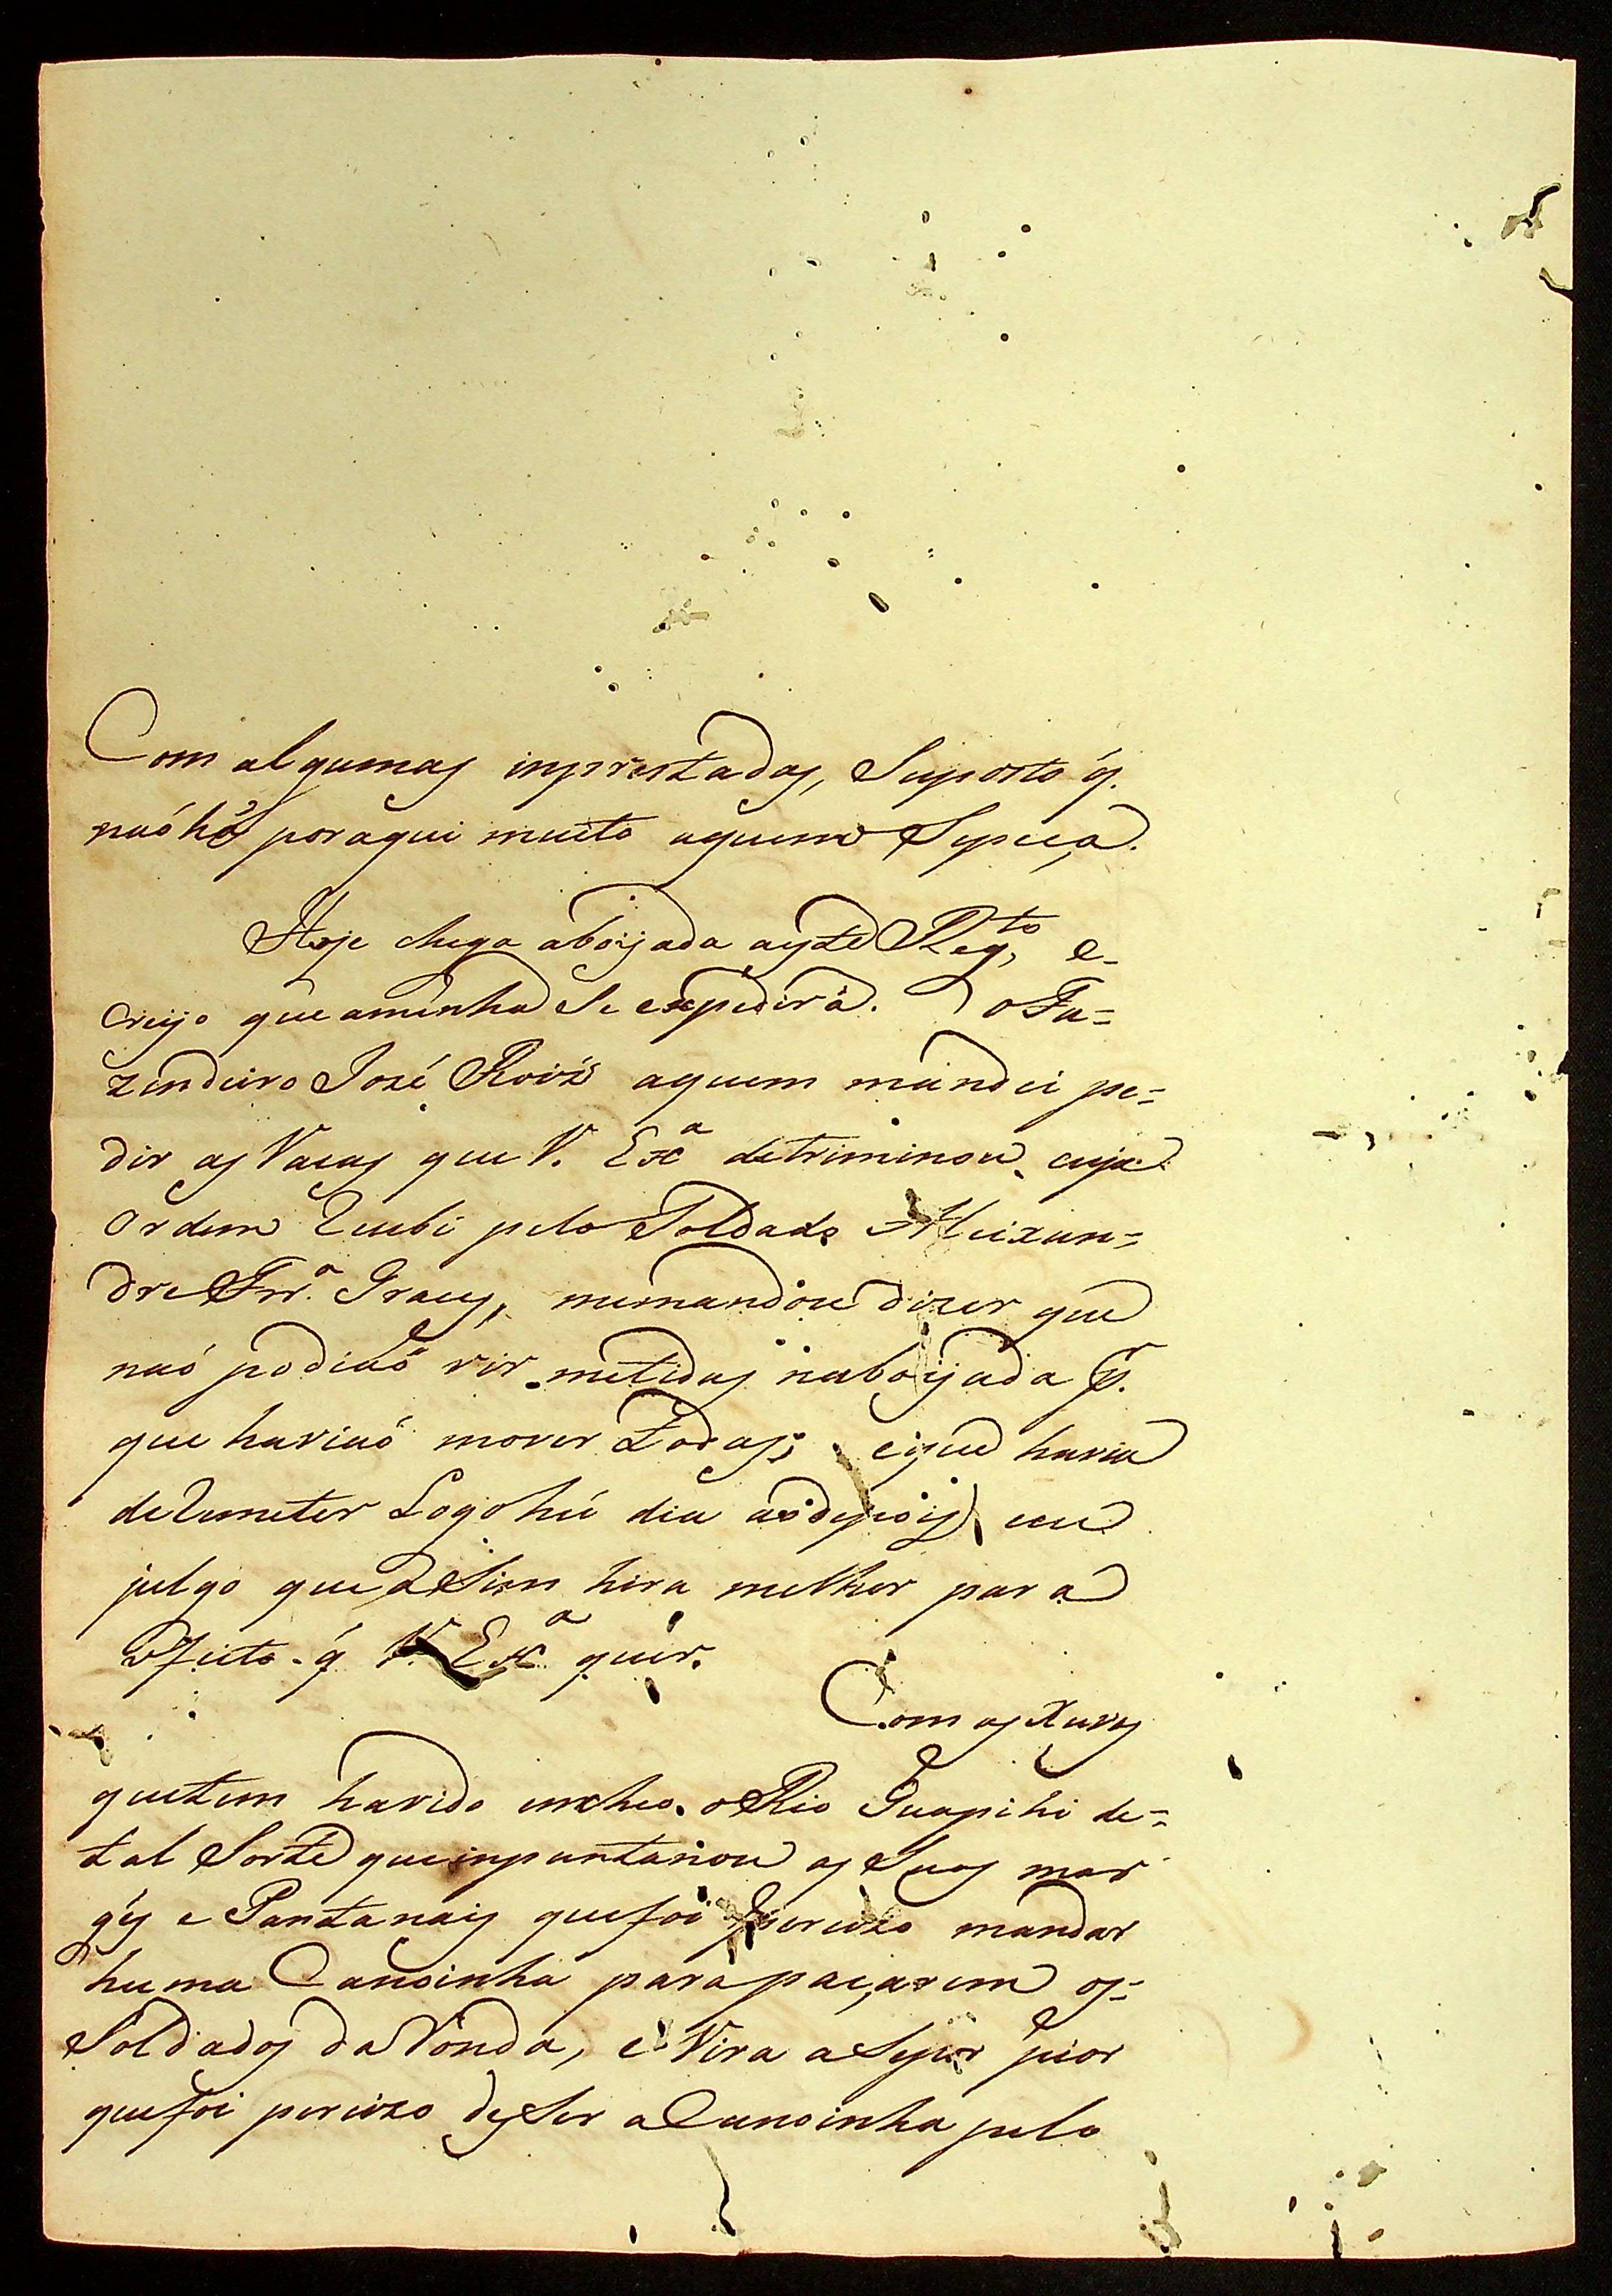 Com algumas inprestadas, Suposto q̃.
naó há por aqui muito aquem Sepeça.
Hoje chega aboijada aeste Reg.to, e-
creijo que aminha Se expedirá. o Fa=
zendeiro Jozé Roiz̃ aquem mandei pe=
dir as Vacas que V. Ex.a detriminou, cuja
Ordem recebi pelo Soldado Aleixan=
dre Frr.a Graces, memandou dizer que
naó podiaó vir metidas naboijada p.r
que haviaó morer todas; eque havia
deremeter Logo hú dia aodepois eeu
julgo que aSim hira melhor para
ofeito q̃ V. Ex.a quer.
Com as xuvas
quetem havido encheo o Rio Guapihi de=
tal Sorte queinpantanou as Suas mar
gẽs e Pantanais quefoi percizo mandar
huma Canoinha para paçarem os=
Soldados da Ronda, e Vira aSeper pior
quefoi percizo deser aCanoinha pelo